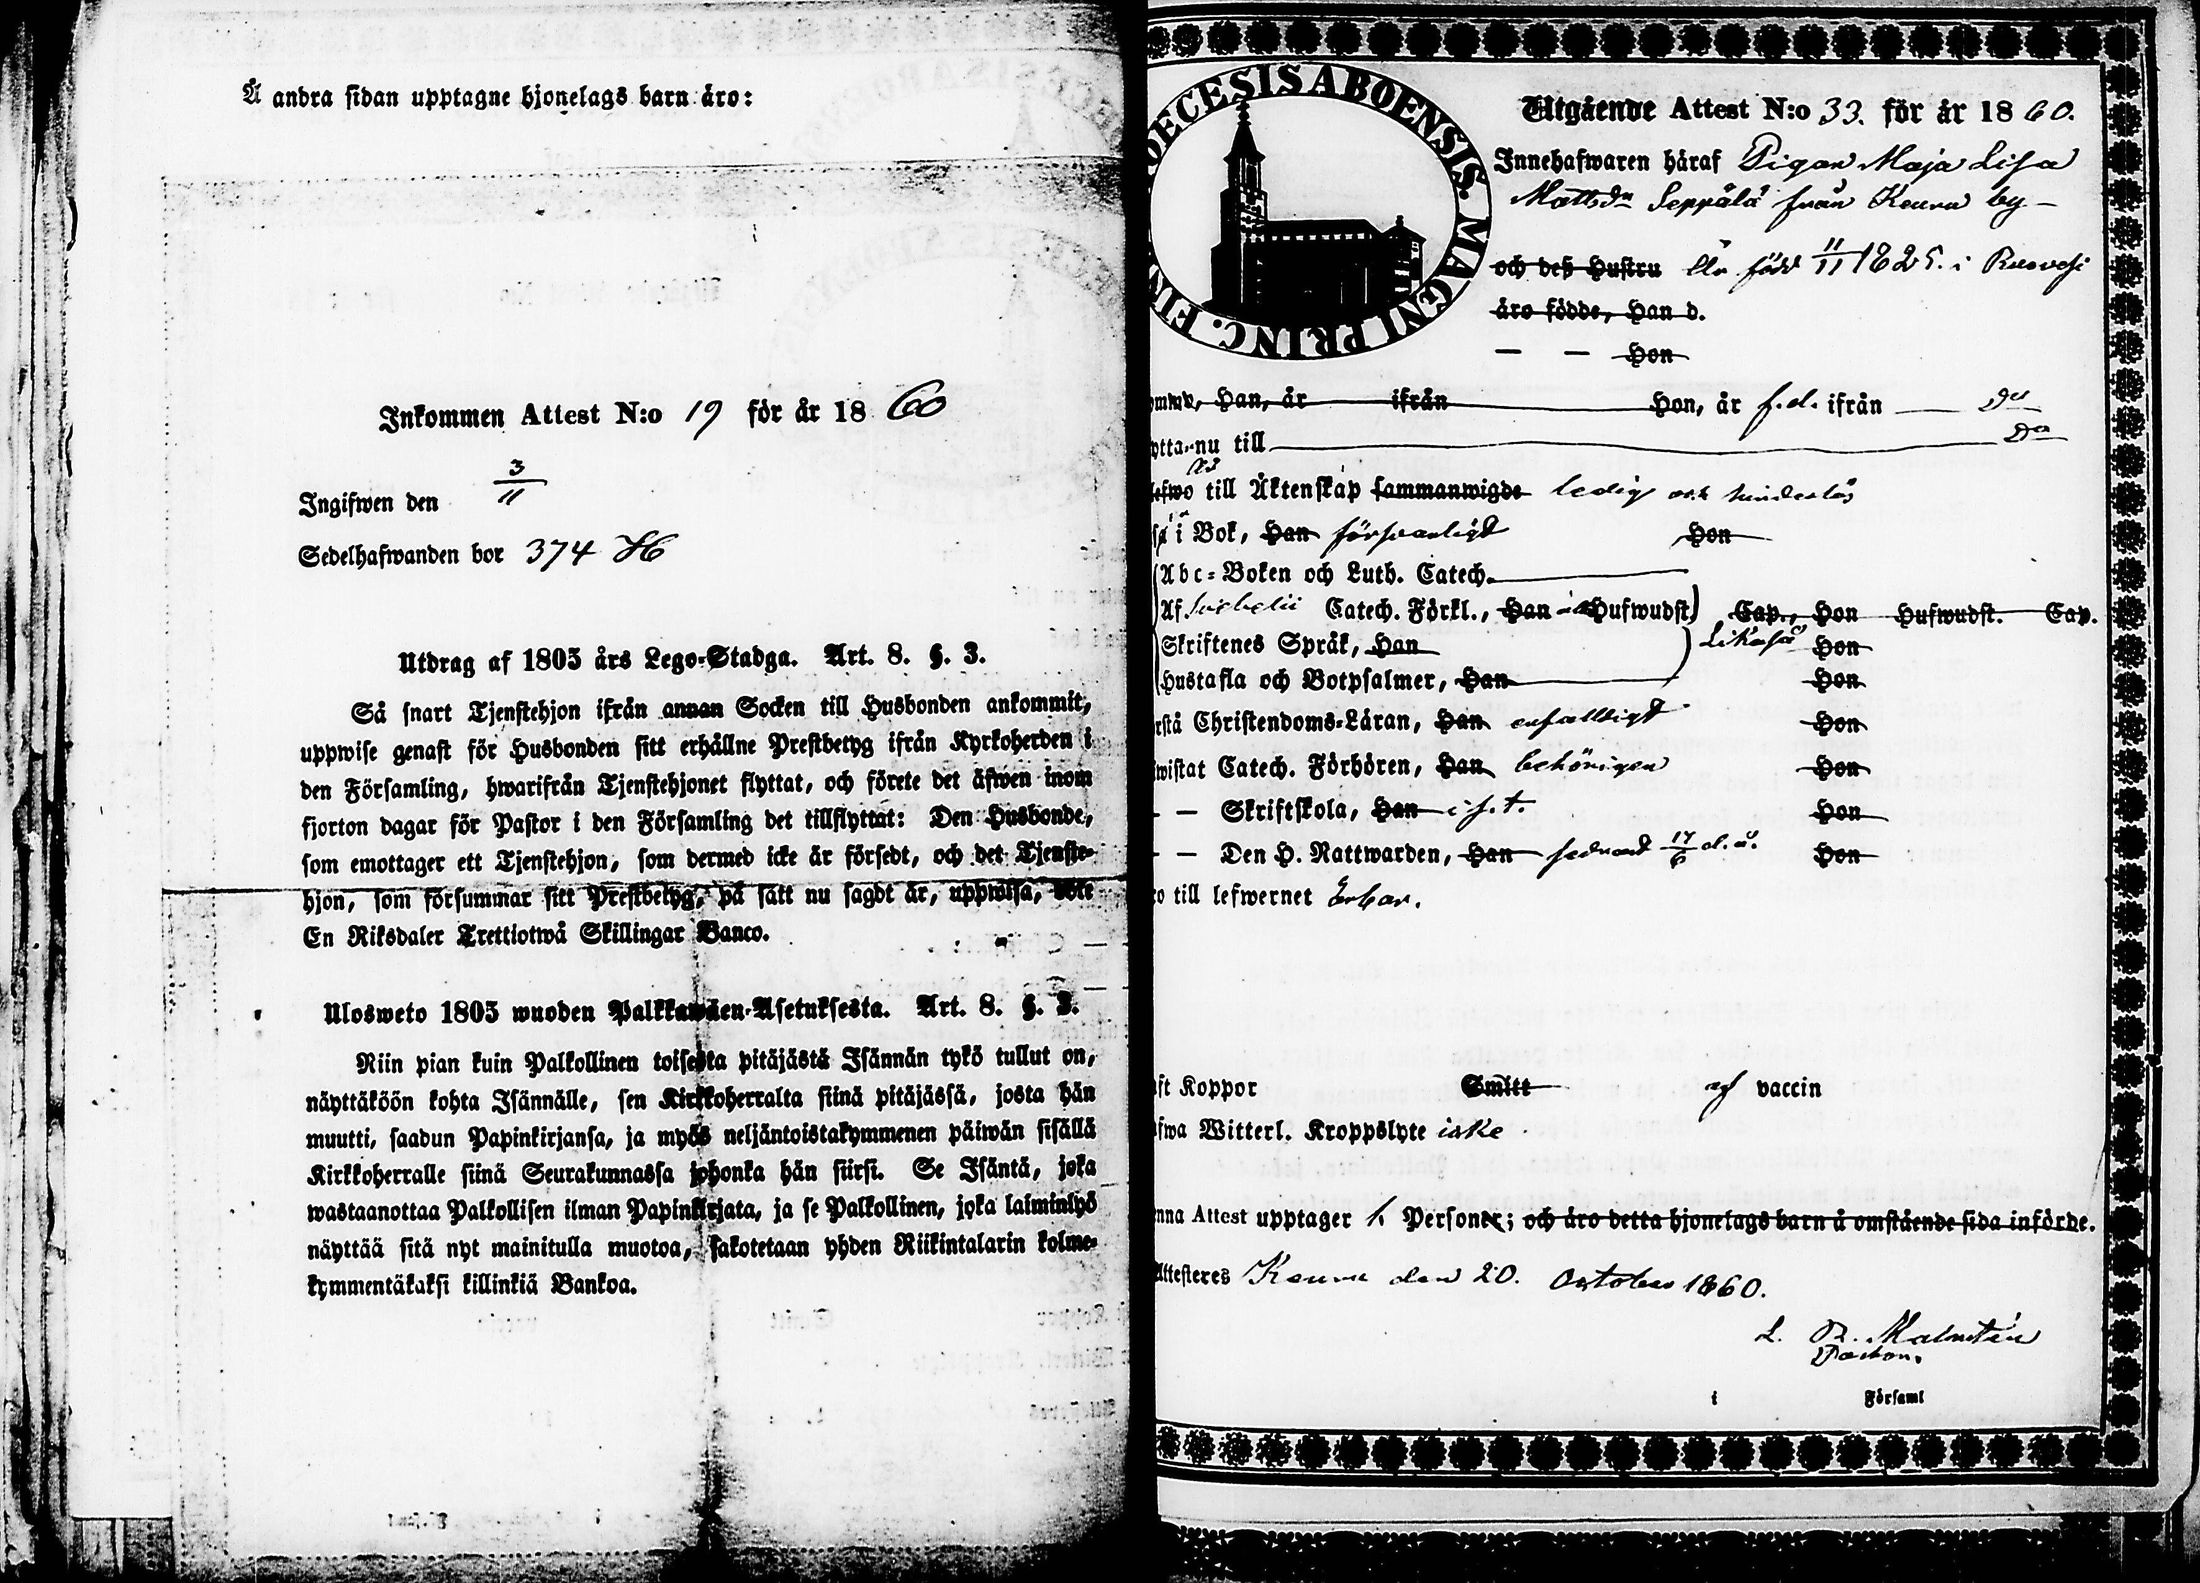 Å andra sidan upptagne hjonelags barn äro:
Inkommen Attest N:o 19 för år 1860
Ingifwen den 3/11
Sedelhafwanden bor 374 H
Utdrag af 1805 års Lego-Stadga. Art. 8. §. 3.
Så snart Tjenstehjon ifrån annan Socken till Husbonden ankommit,
uppwise genast för Husbonden sitt erhållne Prestbetyg ifrån Kyrkoherden i
den Församling, hwarifrån Tjenstehjonet flyttat, och förete det äfwen inom
fjorton dagar för Pastor i den Församling det tillflyttat: Den Husbonde,
som emottager ett Tjenstehjon, som dermed icke är försedt, och det Tjenste-
hjon, som försummar sitt Prestbetyg, på sätt nu sagdt är, uppwisa, böte
En Riksdaler Trettiotwå Skillingar Banco.
Ulosweto 1805 wuoden Palkkawäen-Asetuksesta. Art. 8. §. 3.
Niin pian kuin Palkollinen toisesta pitäjästä Isännän tykö tullut on,
näyttäköön kohta Isännälle, sen Kirkkoherralta siinä pitäjässä, josta hän
muutti, saadun Papinkirjansa, ja myös neljäntoistakymmenen päiwän sisällä
Kirkkoherralle siinä Seurakunnassa johonka hän siirsi. Se Isäntä, joka
wastaanottaa Palkollisen ilman Papinkirjata, ja se Palkollinen, joka laiminlyö
näyttää sitä nyt mainitulla muotoa, sakotetaan yhden Riikintalarin kolme-
kymmentäkaksi killinkiä Bankoa.
DECESIS ABOENSIS. MAGNI PRINC. FIN
Utgående Attest N:o 33. för år 1860.
Innehafwaren häraf Pigan Maja Lisa
Mattsdr Seppälä från Keuru by
och deß Hustru är född 11/11 1825. i Ruovesi
äro födde, Han d.
— — Hon
Han, är ifrån Hon, är f.d. ifrån Do
nu till Do
till Äktenskap sammanwigde ledig och hinderlös
i Bok, Han försvarligt Hon
Abc-Boken och Luth. Catech.
Af Svebelii Catech. Förkl., Han Hufwudst. Cap., Hon Hufwudst. Cap.
Skriftenes Språk, Han Likaså Hon
Hustafla och Botpsalmer, Han Hon
rstå Christendoms-Läran, Han enfaldigt Hon
wistat Catech. Förhören, Han behörigen Hon
— — Skriftskola, Han Hon
— — Den H. Nattwarden, Han sednast 17/6 d. å. Hon
ro till lefwernet Erbar.
ft Koppor Smitt af vaccin
fwa Witterl. Kroppslyte icke
nna Attest upptager 1. Personer; och äro detta hjonelags barn å omstående sida införde.
Attesteres Keuru den 20. October 1860.
Malmstén
Pastor.
i Församl